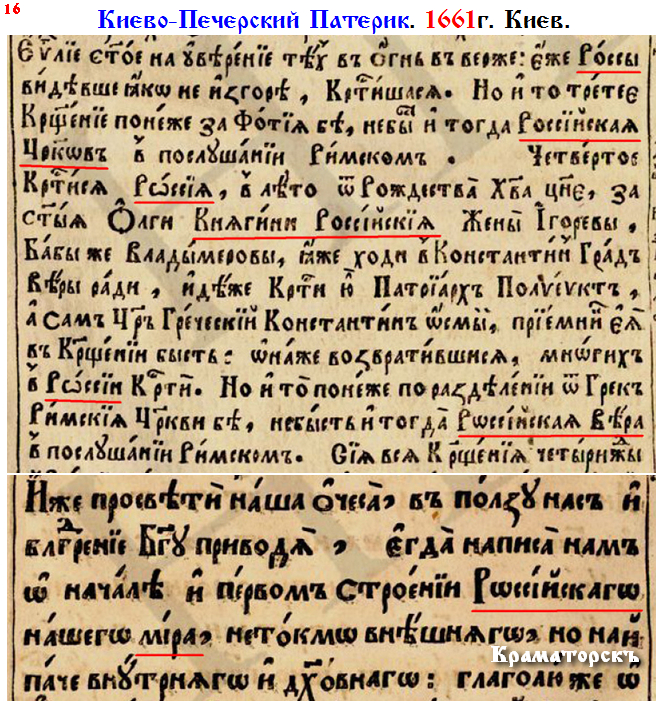 16
Киево-Печерский Патерик. 1661г. Киев.
Єѵⷢ҇лїе ст҃ое на ᲂувѣренїе тѣхъ въ ѻ҆гнь въ верже: є҆же Ро́ссы
видѣвше ꙗ҆кѡ не и҆згорѣ, Крⷭ҇ти́шасѧ. Но и҆ то третее
Крⷳ҇щенїе поне́же за Фо́тїѧ бѣ, небы́ⷭ҇ и҆ тогда Россі́йскаѧ
Чр҃ковъ в̾ послꙋша́нїи Римскомъ. Четве́ртое
Крⷭ҇ти́сѧ Рѡссїѧ, в̾ лѣто ѿ Рождества̀ Хв҃а ц҃не, за
ст҃ыѧ Ѻ҆лги Кнѧгини Россі́йскїѧ Жены̀ І҆горевы,
Бабы же Влады́меровы, ꙗ҆же ходи в̾ Константи́й Гра́дъ
Вѣры ра́ди, и҆дѣже Крⷭ҇ти ю҆̀ Патрїа́рхъ Полѵе́ѵктъ,
а҆ самъ Цр҃ъ Гре́ческїй Константи́нъ ѻ҆смы́й, прїе́мнⷦ҇и є҆ѧ̀
въ Крⷳ҇ще́нїи бысть: ѻ҆на́же возврати́вшисѧ, мнѡ́гихъ
в̾ Рѡссїи Крⷭ҇ти. Но и҆ то̀ поне́же по раздѣле́нїи ѿ Грекъ
Ри́мскїѧ Чр҃кви бѣ, небы́сть и҆ тогда̀ Рѡссі́йскаѧ Вѣ́ра
в̾ послꙋша́нїи Ри́мскомъ. Сїѧ всѧ Крⷳ҇ще́нїѧ четы́рижⷣы
И҆́же просвѣтѝ на́ша ѻ҆чеса̀, въ по́лзꙋ насъ и҆
блгⷣре́нїе Бг҃ꙋ приводѧ̀, є҆гда̀ написа̀ намъ
ѡ҆ нача́лѣ и҆ пе́рвомъ строе́нїи Рѡссі́йскагѡ
на́шегѡ мі́ра, нето́кмѡ внѣ́шнѧгѡ, но на́й
па́че внꙋ́трнѧгѡ и҆ дх҃о́внагѡ: глаго́лю же ѡ҆
Краматорскъ